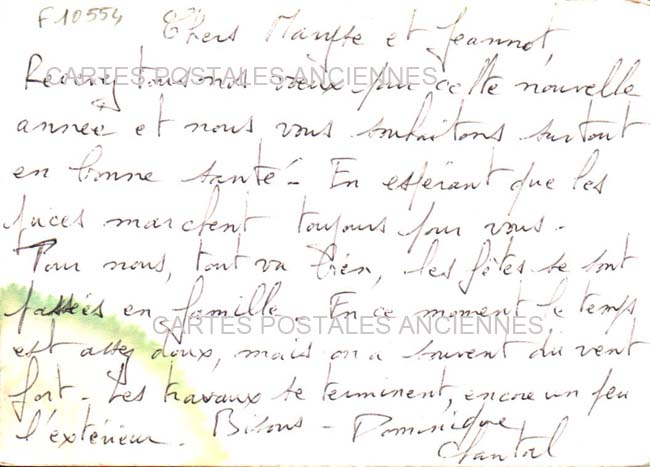 F10554
Chers Maryse et Jeannot,
Recevez tous nos vœux pour cette nouvelle
CARTES POSTALES ANCIENNES
année et nous vous souhaitons surtout
en bonne santé - En espérant que les
puces marchent toujours pour vous -
Pour nous, tout va bien, les fêtes se sont
passées en famille. En ce moment le temps
CARTES POSTALES ANCIENNES
est assez doux, mais on a souvent du vent
fort - Les travaux se terminent, encore un peu
l'extérieur. Bisous - Dominique
Chantal